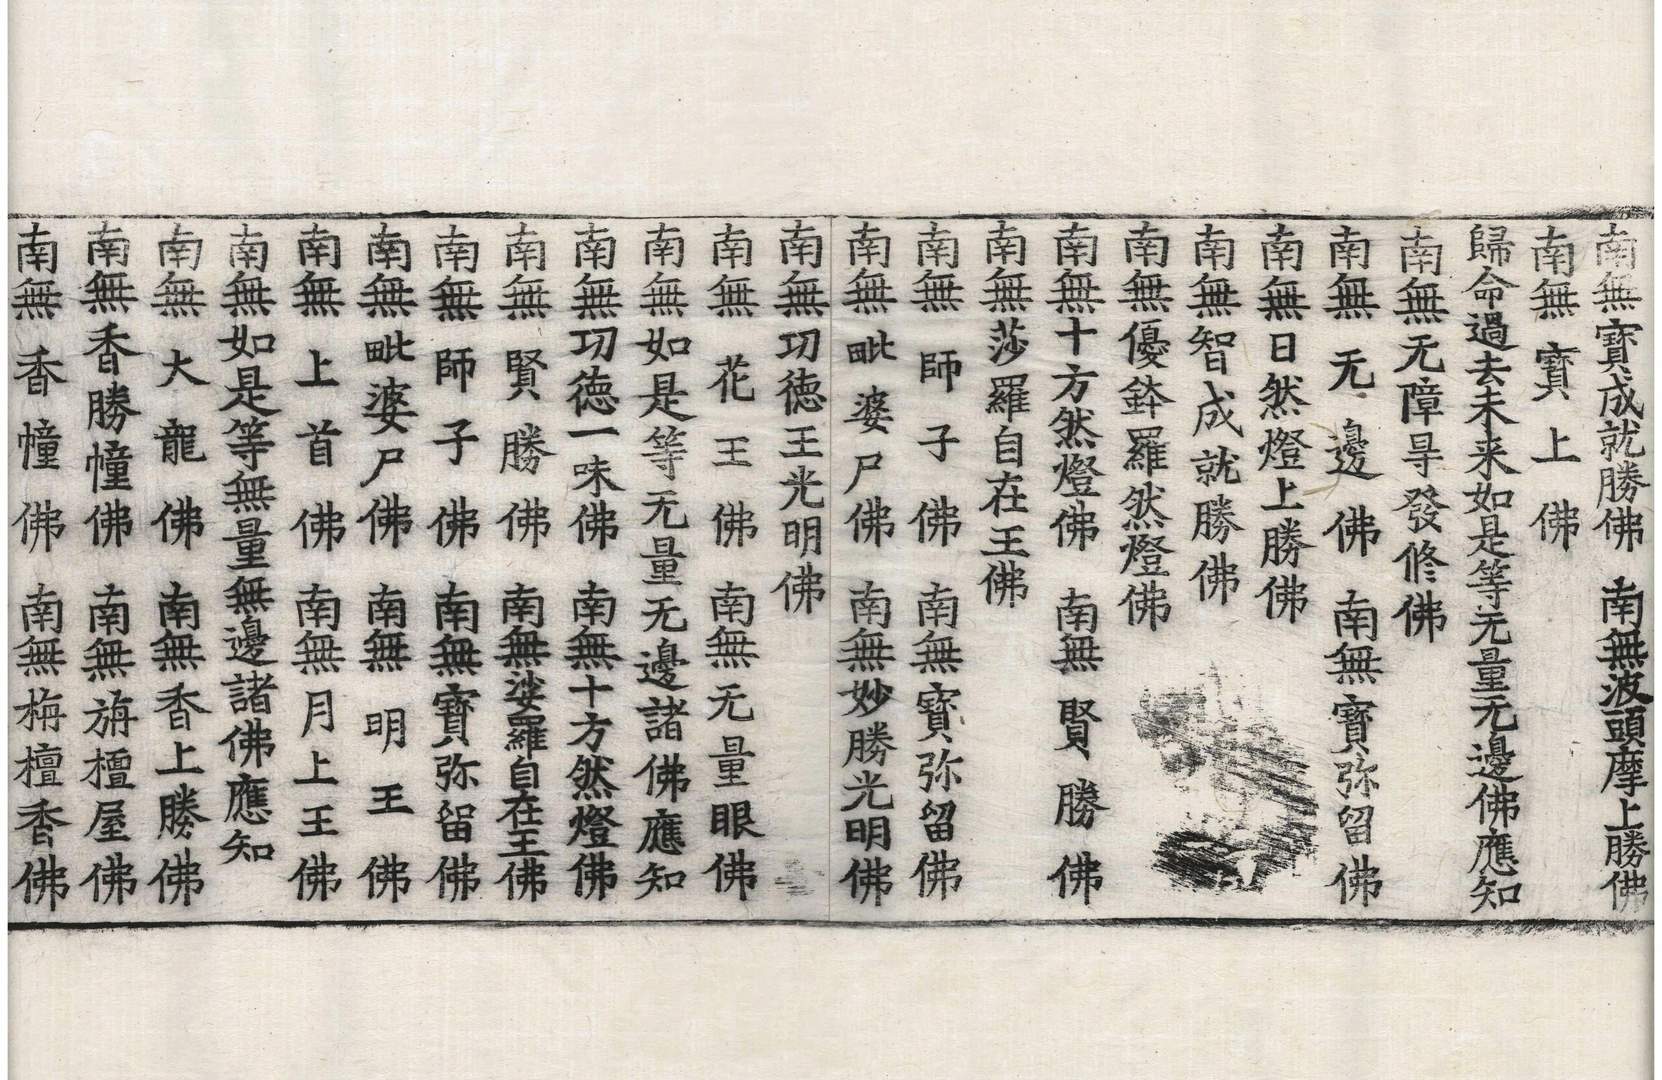 南無寶成就勝佛 南無波頭摩上勝佛
南無寶上佛
歸命過去未来如是等无量无邊佛應知
南無无障㝵發修佛
南無无邊佛 南無寶弥留佛
南無日然燈上勝佛
南無智成就勝佛
南無優鉢羅然燈佛
南無十方然燈佛 南無賢勝佛
南無莎羅自在王佛
南無師子佛 南無寶弥留佛
南無毗婆尸佛 南無妙勝光明佛
南無㓛德王光明佛
南無花王佛 南無无量眼佛
南無如是等无量无邊諸佛應知
南無㓛德一味佛 南無十方然燈佛
南無賢勝佛 南無娑羅自在王佛
南無師子佛 南無寶弥留佛
南無毗婆尸佛 南無明王佛
南無上首佛 南無月上王佛
南無如是等無量無邊諸佛應知
南無大龍佛 南無香上勝佛
南無香勝幢佛 南無旃檀屋佛
南無香幢佛 南無栴檀香佛